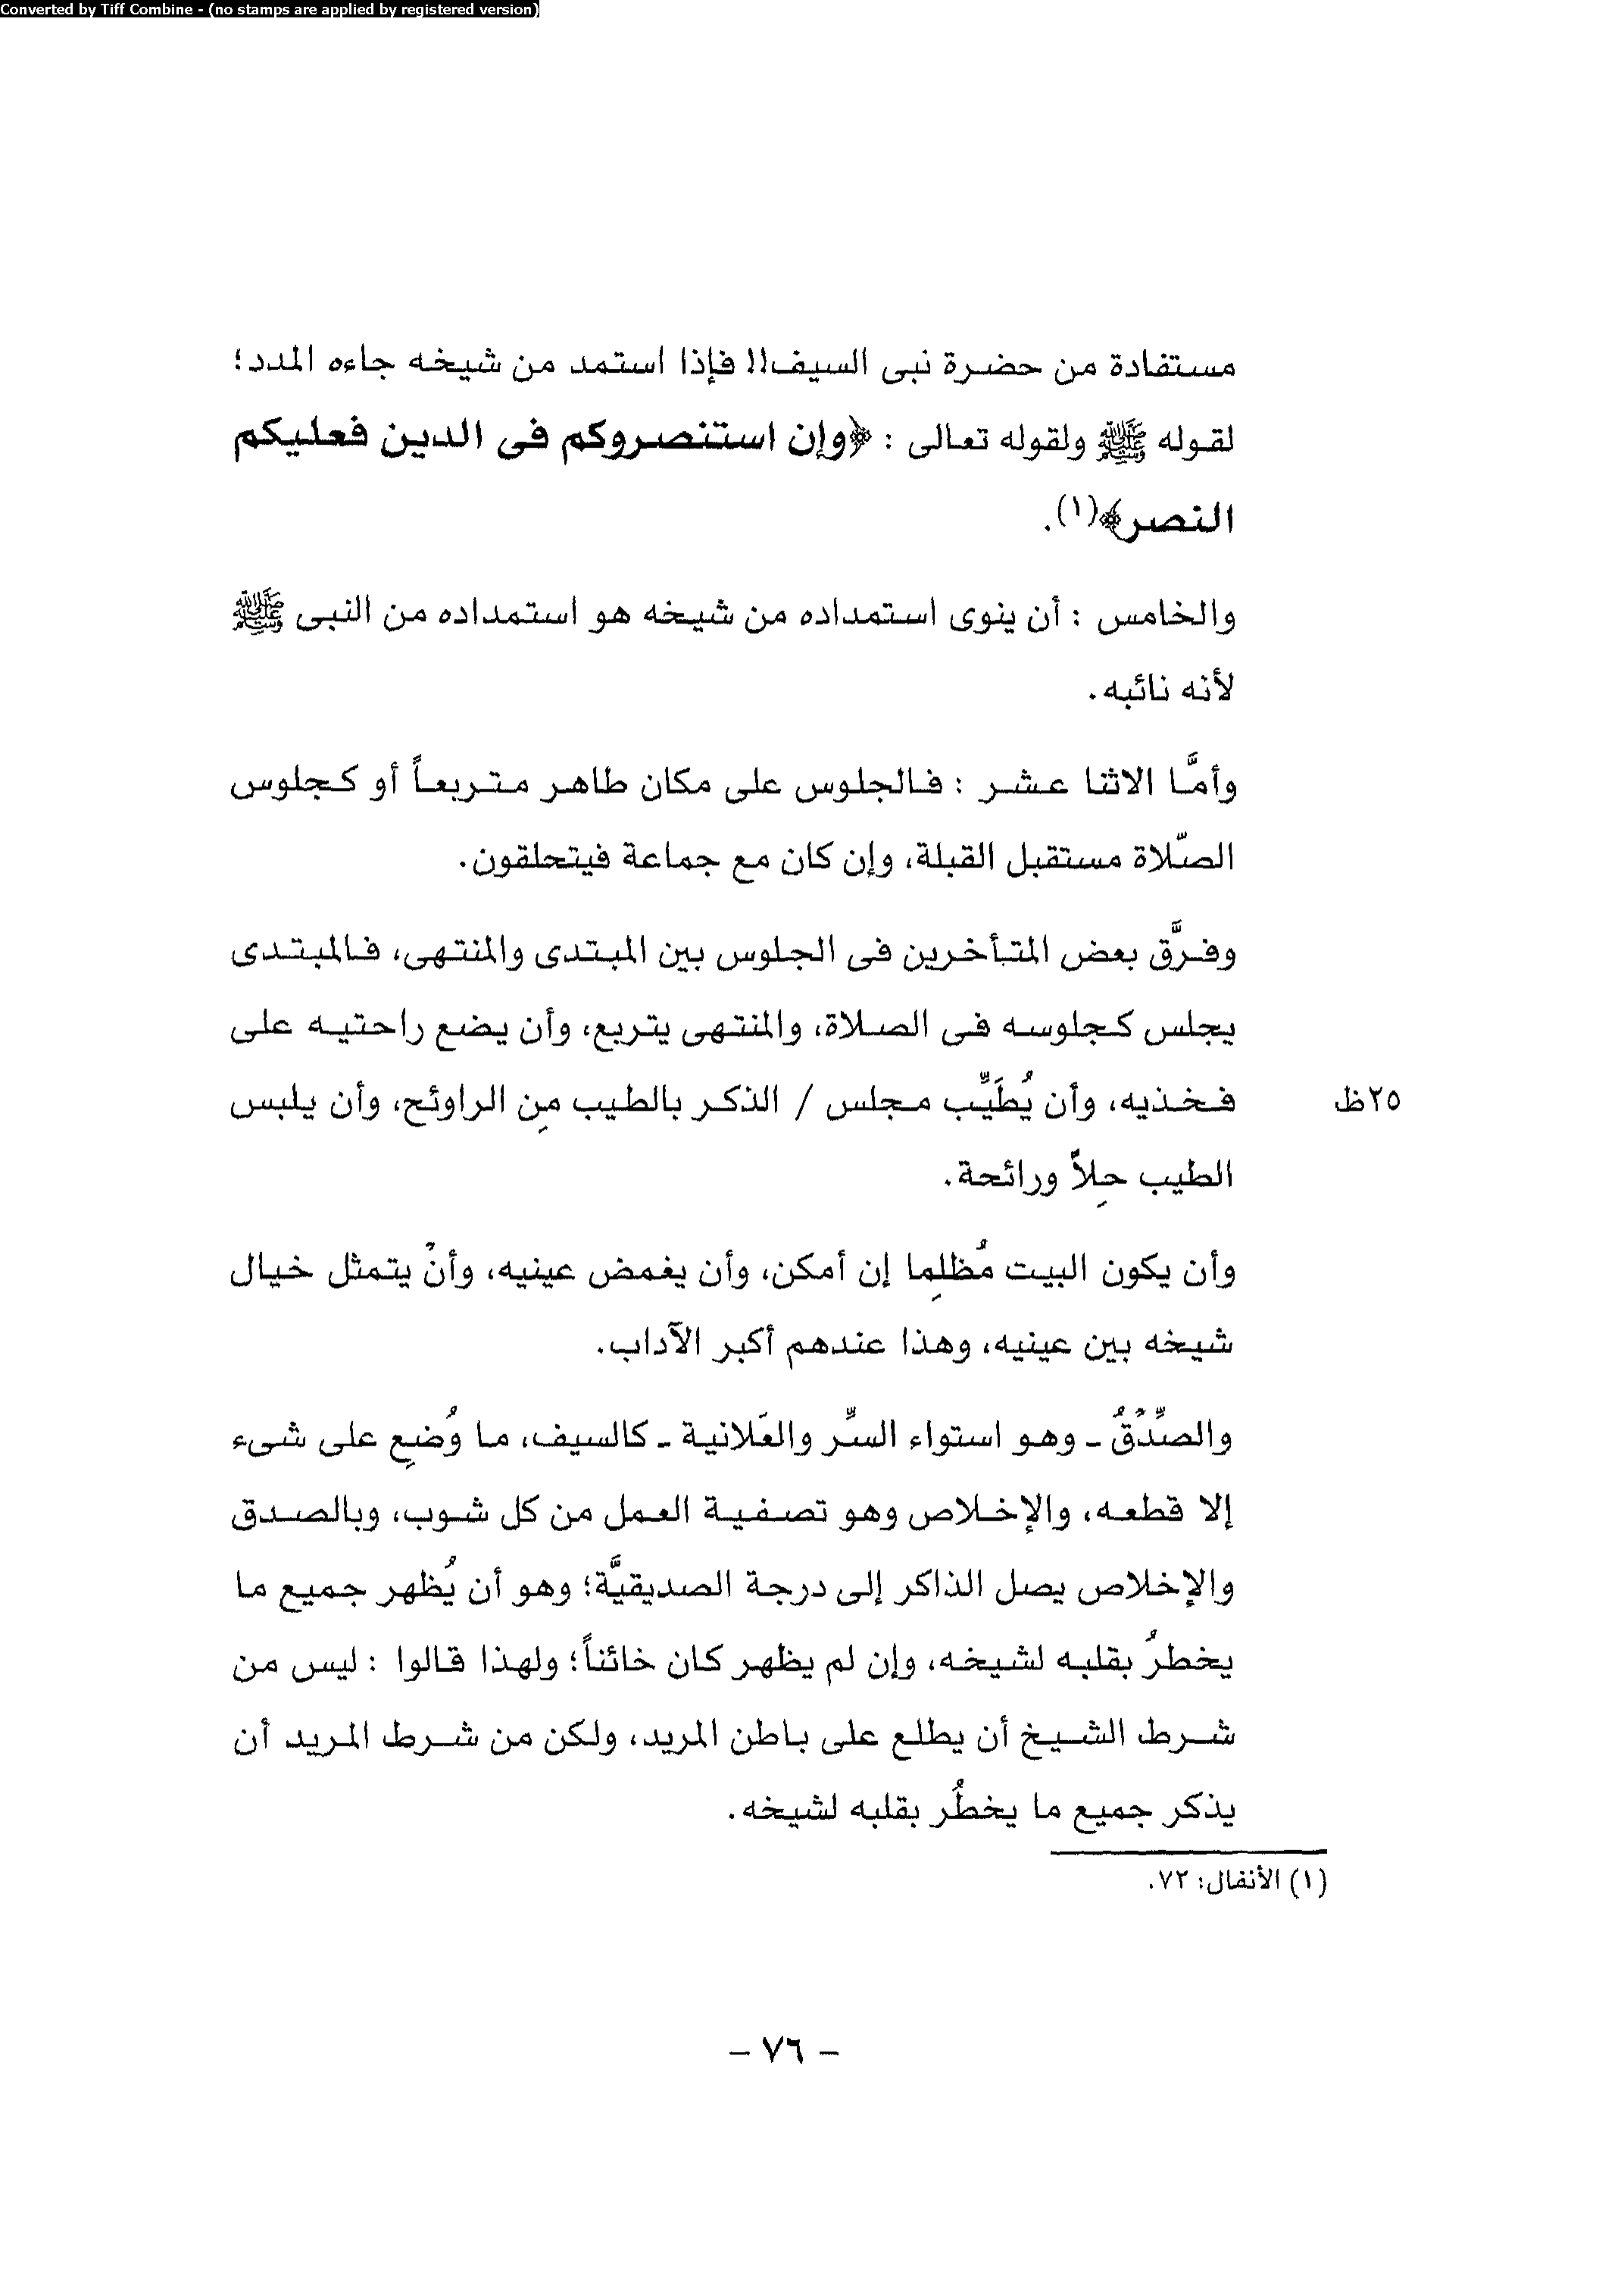 Converted by Tiff Combine - (no stamps are applied by registered version)
مستفادة من حضرة نبى السيف!! فإذا استمد من شيخه جاءه المدد؛
لقوله ﷺ ولقوله تعالى : ﴿وإن استنصروكم فى الدين فعليكم
النصر﴾(١).
والخامس : أن ينوى استمداده من شيخه هو استمداده من النبى ﷺ
لأنه نائبه.
وأمَّا الاثنا عشر : فالجلوس على مكان طاهر متربعاً أو كجلوس
الصّلاة مستقبل القبلة، وإن كان مع جماعة فيتحلقون.
وفرَّق بعض المتأخرين فى الجلوس بين المبتدى والمنتهى، فالمبتدى
يجلس كجلوسه فى الصلاة، والمنتهى يتربع، وأن يضع راحتيه على
فخذيه، وأن يُطَيِّب مجلس / الذكر بالطيب مِن الراوئح، وأن يلبس
٢٥ظ
الطيب حِلاًّ ورائحة.
وأن يكون البيت مُظلِما إن أمكن، وأن يغمض عينيه، وأنْ يتمثل خيال
شيخه بين عينيه، وهذا عندهم أكبر الآداب.
والصِّدْقُ ـ وهو استواء السِّر والعَلانية ـ كالسيف، ما وُضِع على شىء
إلا قطعه، والإخلاص وهو تصفية العمل من كل شوب، وبالصدق
والإخلاص يصل الذاكر إلى درجة الصديقيَّة؛ وهو أن يُظهر جميع ما
يخطرُ بقلبه لشيخه، وإن لم يظهر كان خائناً؛ ولهذا قالوا : ليس من
شرط الشيخ أن يطلع على باطن المريد، ولكن من شرط المريد أن
يذكر جميع ما يخطُر بقلبه لشيخه.
(١) الأنفال: ٧٢.
- ٧٦ -